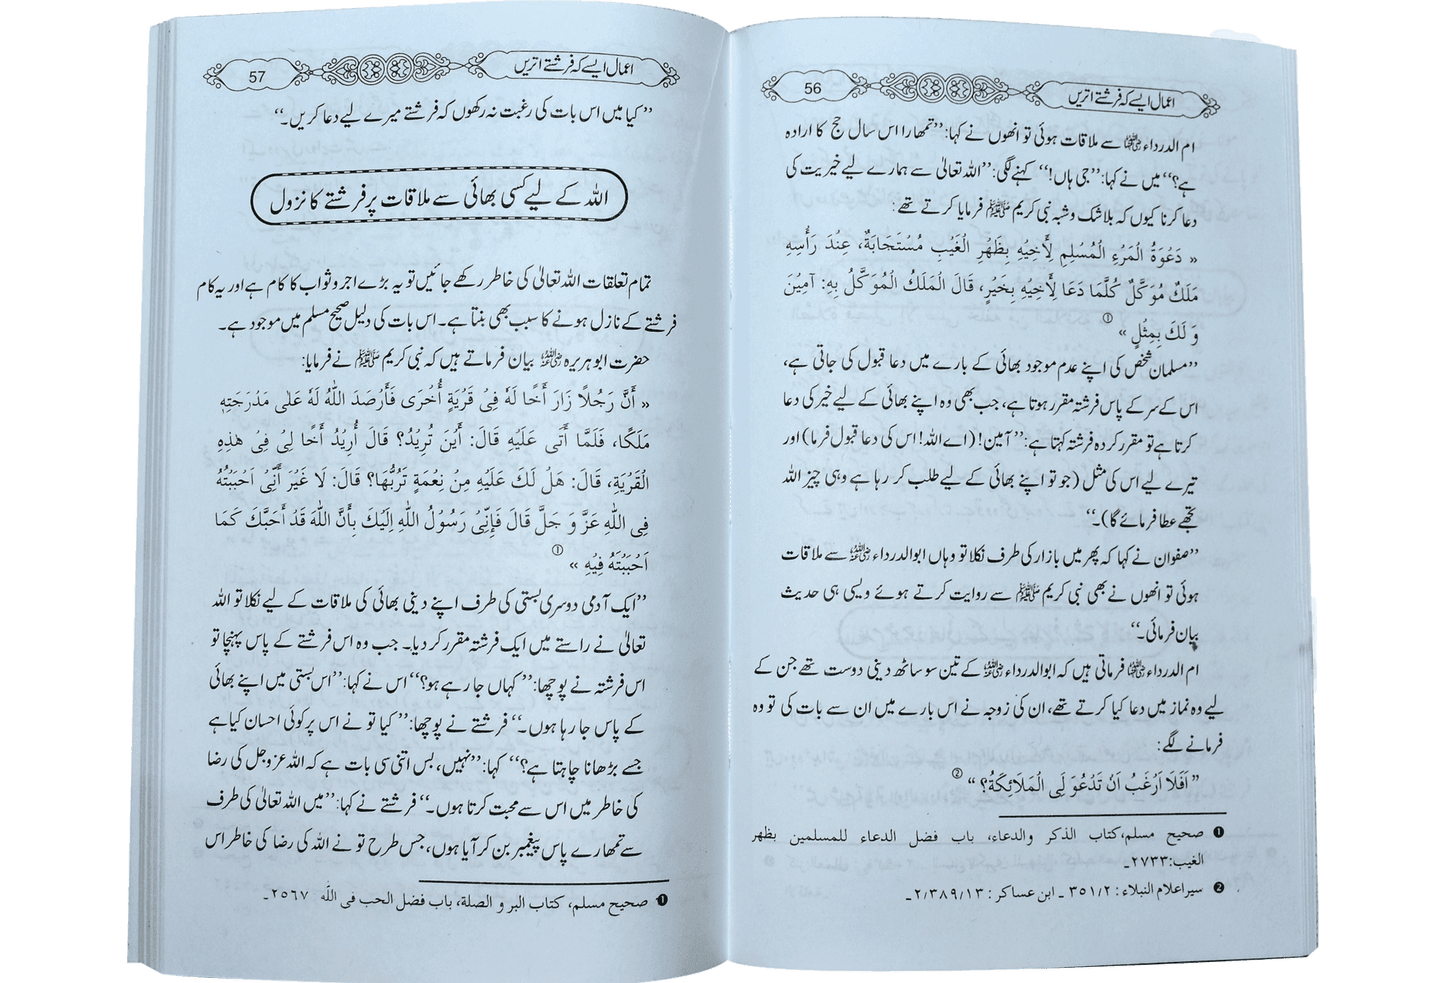 اعمال ایسے کہ فرشتے اتریں
56
ام الدرداء رضی اللہ عنہا سے ملاقات ہوئی تو انھوں نے کہا: ’’تمھارا اس سال حج کا ارادہ
ہے؟‘‘ میں نے کہا: ’’جی ہاں!‘‘ کہنے لگی: ’’اللہ تعالیٰ سے ہمارے لیے خیریت کی
دعا کرنا کیوں کہ بلاشک وشبہ نبی کریم ﷺ فرمایا کرتے تھے:
« دَعْوَةُ الْمَرْءِ الْمُسْلِمِ لِأَخِيْهِ بِظَهْرِ الْغَيْبِ مُسْتَجَابَةٌ، عِنْدَ رَأْسِهِ
مَلَكٌ مُوَكَّلٌ كُلَّمَا دَعَا لِأَخِيْهِ بِخَيْرٍ، قَالَ الْمَلَكُ الْمُوَكَّلُ بِهِ: آمِيْنَ
وَ لَكَ بِمِثْلٍ » ①
’’مسلمان شخص کی اپنے عدم موجود بھائی کے بارے میں دعا قبول کی جاتی ہے،
اس کے سر کے پاس فرشتہ مقرر ہوتا ہے، جب بھی وہ اپنے بھائی کے لیے خیر کی دعا
کرتا ہے تو مقرر کردہ فرشتہ کہتا ہے: ’’آمین! (اے اللہ! اس کی دعا قبول فرما) اور
تیرے لیے اس کی مثل (جو تو اپنے بھائی کے لیے طلب کر رہا ہے وہی چیز اللہ
تجھے عطا فرمائے گا)۔‘‘
’’صفوان نے کہا کہ پھر میں بازار کی طرف نکلا تو وہاں ابوالدرداء رضی اللہ عنہ سے ملاقات
ہوئی تو انھوں نے بھی نبی کریم ﷺ سے روایت کرتے ہوئے ویسی ہی حدیث
بیان فرمائی۔‘‘
ام الدرداء رضی اللہ عنہا فرماتی ہیں کہ ابوالدرداء رضی اللہ عنہ کے تین سو ساٹھ دینی دوست تھے جن کے
لیے وہ نماز میں دعا کیا کرتے تھے، ان کی زوجہ نے اس بارے میں ان سے بات کی تو وہ
فرمانے لگے:
” اَفَلَا اَرْغَبُ اَنْ تَدْعُوَ لِى الْمَلَائِكَةُ؟ “ ②
❶ صحیح مسلم، کتاب الذکر والدعاء، باب فضل الدعاء للمسلمین بظهر
الغيب:۲۷۳۳۔
❷ سیر اعلام النبلاء : ۳۵۱/۲ ۔ ابن عساکر : ۲/۳۸۹/۱۳ ۔
اعمال ایسے کہ فرشتے اتریں
57
’’کیا میں اس بات کی رغبت نہ رکھوں کہ فرشتے میرے لیے دعا کریں۔‘‘
اللہ کے لیے کسی بھائی سے ملاقات پر فرشتے کا نزول
تمام تعلقات اللہ تعالیٰ کی خاطر رکھے جائیں تو یہ بڑے اجر و ثواب کا کام ہے اور یہ کام
فرشتے کے نازل ہونے کا سبب بھی بنتا ہے۔ اس بات کی دلیل صحیح مسلم میں موجود ہے۔
حضرت ابوہریرہ رضی اللہ عنہ بیان فرماتے ہیں کہ نبی کریم ﷺ نے فرمایا:
« أَنَّ رَجُلًا زَارَ أَخًا لَهُ فِىْ قَرْيَةٍ أُخْرَى فَأَرْصَدَ اللّٰهُ لَهُ عَلٰى مَدْرَجَتِهِ
مَلَكًا، فَلَمَّا أَتَى عَلَيْهِ قَالَ: أَيْنَ تُرِيْدُ؟ قَالَ أُرِيْدُ أَخًا لِىْ فِىْ هٰذِهِ
الْقَرْيَةِ، قَالَ: هَلْ لَكَ عَلَيْهِ مِنْ نِعْمَةٍ تَرُبُّهَا؟ قَالَ: لَا غَيْرَ أَنِّىْ اَحْبَبْتُهُ
فِى اللّٰهِ عَزَّ وَ جَلَّ قَالَ فَإِنِّىْ رَسُوْلُ اللّٰهِ اِلَيْكَ بِأَنَّ اللّٰهَ قَدْ أَحَبَّكَ كَمَا
اَحْبَبْتَهُ فِيْهِ » ①
’’ایک آدمی دوسری بستی کی طرف اپنے دینی بھائی کی ملاقات کے لیے نکلا تو اللہ
تعالیٰ نے راستے میں ایک فرشتہ مقرر کر دیا۔ جب وہ اس فرشتے کے پاس پہنچا تو
اس فرشتہ نے پوچھا: ’’کہاں جا رہے ہو؟‘‘ اس نے کہا: ’’اس بستی میں اپنے بھائی
کے پاس جا رہا ہوں۔‘‘ فرشتے نے پوچھا: ’’کیا تو نے اس پر کوئی احسان کیا ہے
جسے بڑھانا چاہتا ہے؟‘‘ کہا: ’’نہیں، بس اتنی سی بات ہے کہ اللہ عزوجل کی رضا
کی خاطر میں اس سے محبت کرتا ہوں۔‘‘ فرشتے نے کہا: ’’میں اللہ تعالیٰ کی طرف
سے تمھارے پاس پیغمبر بن کر آیا ہوں، جس طرح تو نے اللہ کی رضا کی خاطر اس
❶ صحیح مسلم، کتاب البر و الصلة، باب فضل الحب فی اللّٰه ۲۵۶۷۔